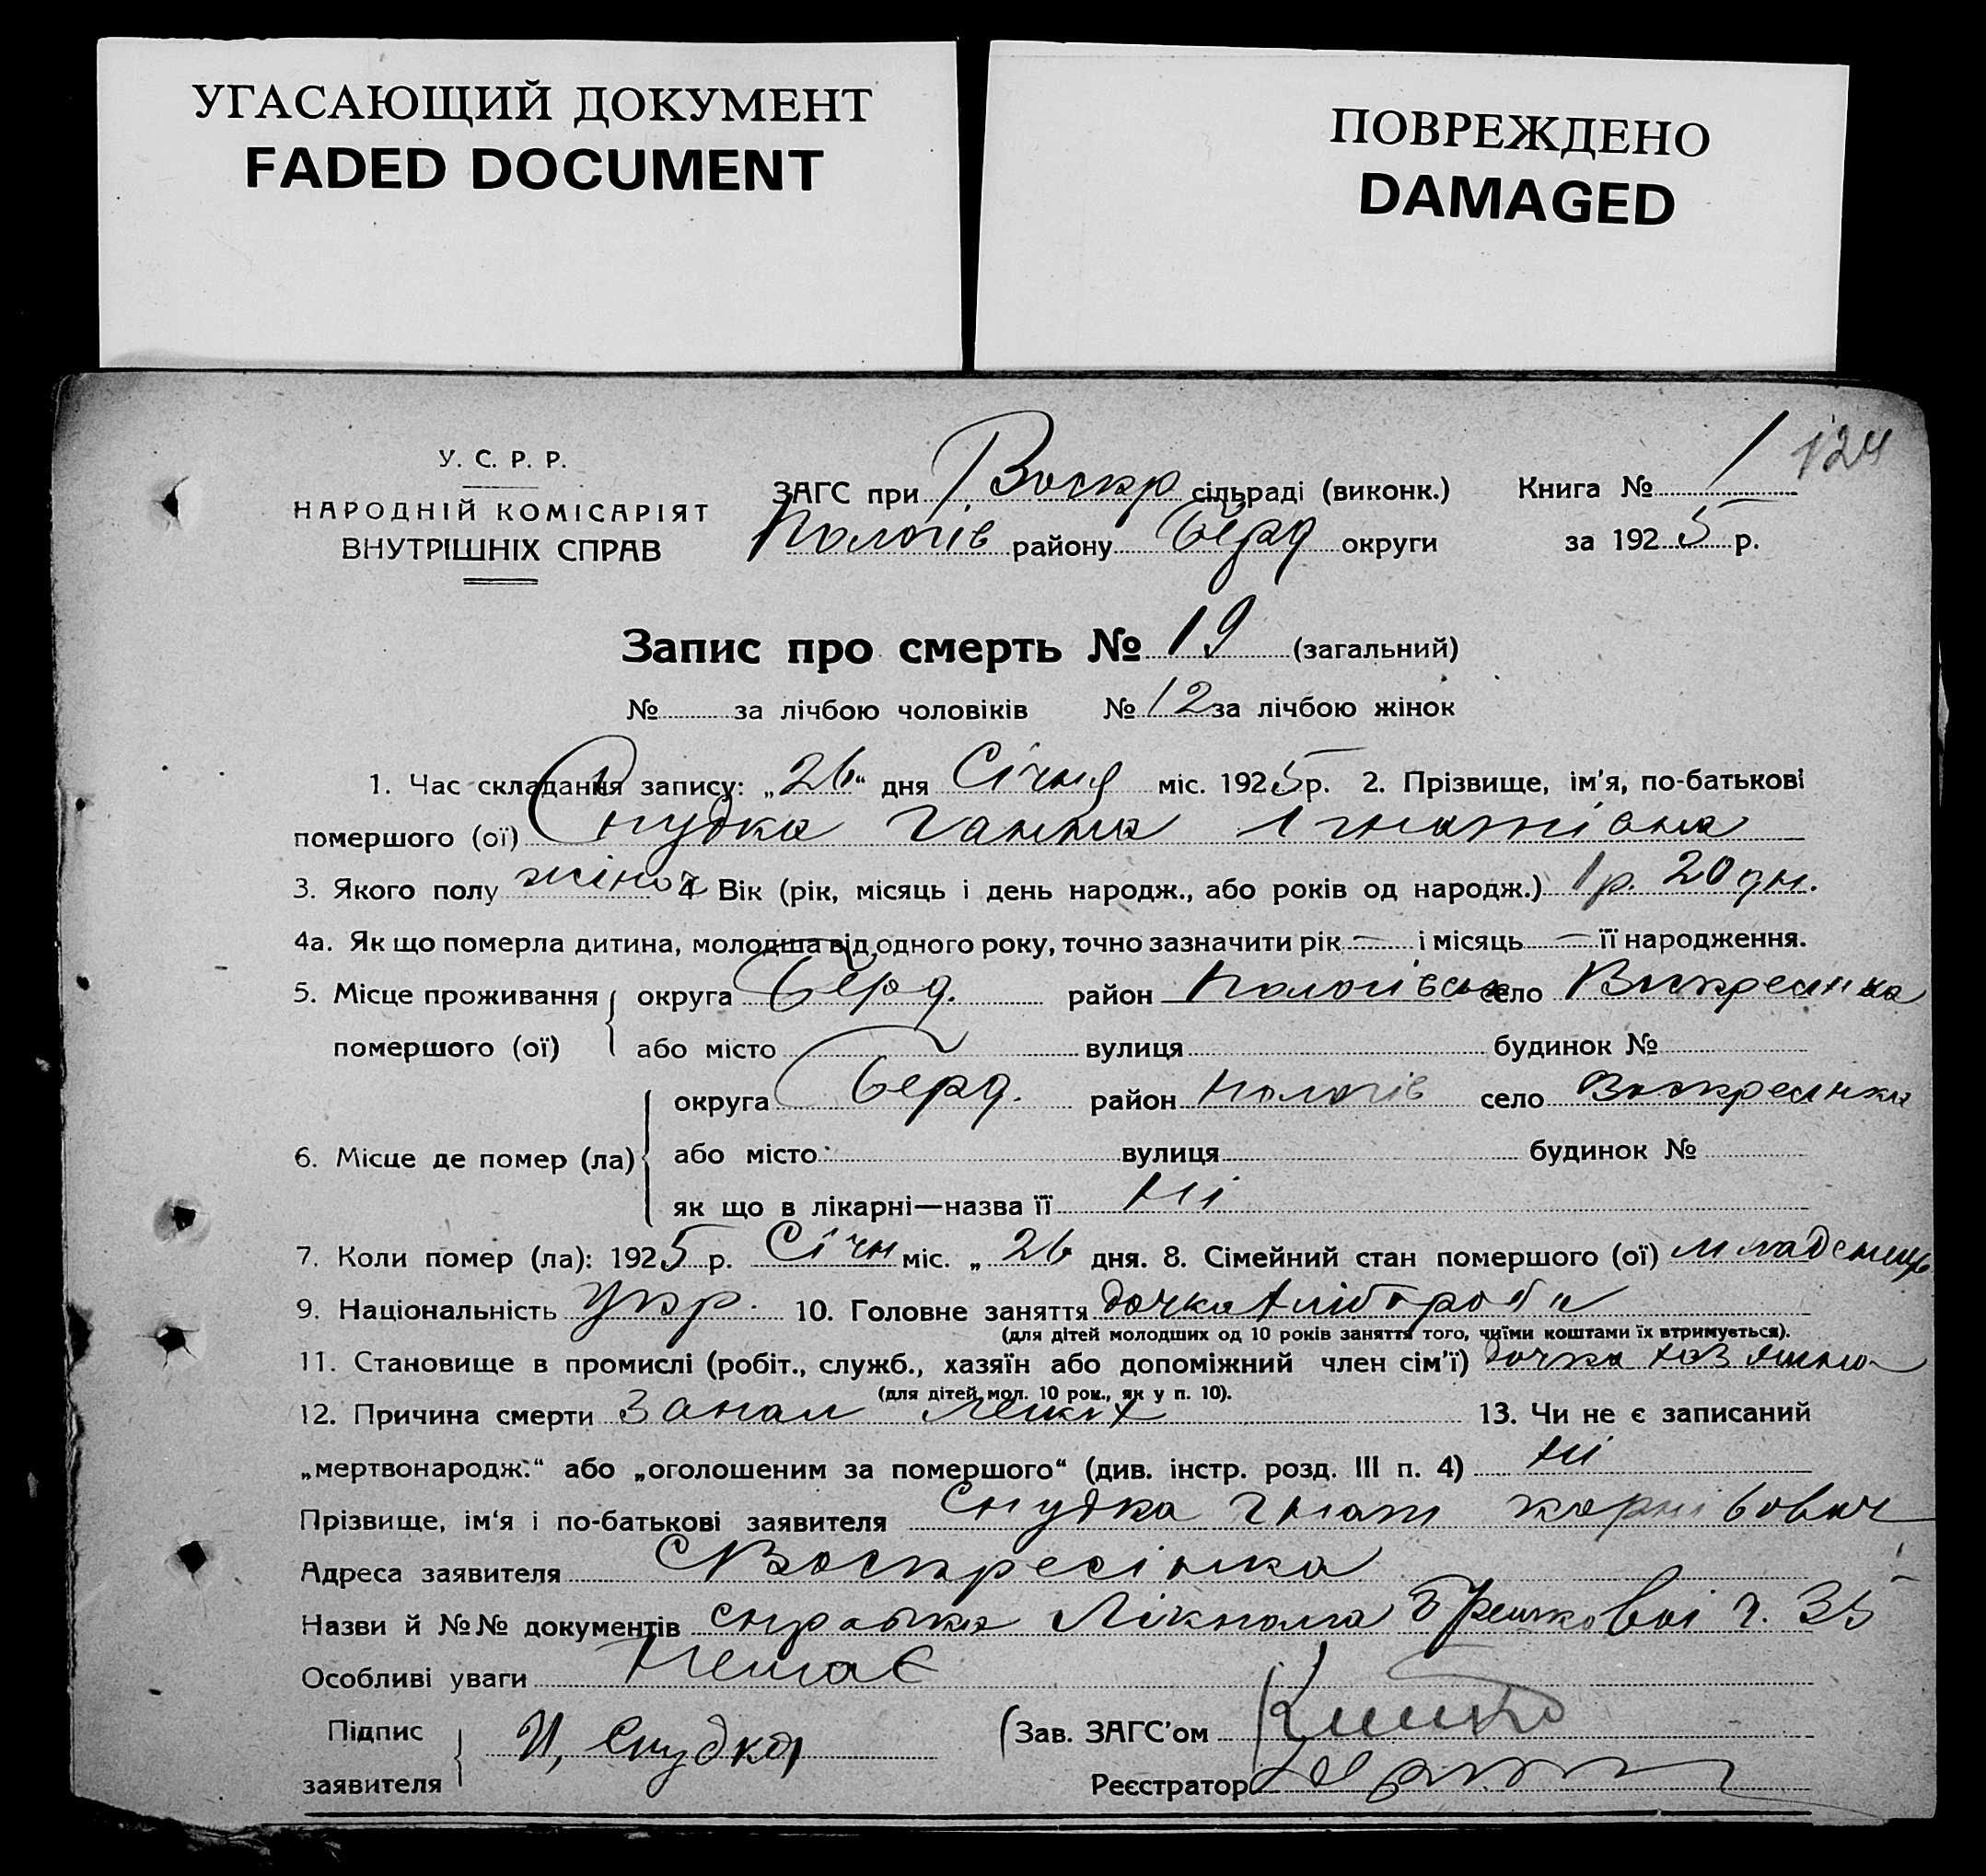 УГАСАЮЩИЙ ДОКУМЕНТ
FADED DOCUMENT
ПОВРЕЖДЕНО
DAMAGED
У. С. Р. Р.
НАРОДНІЙ КОМІСАРІЯТ
ВНУТРІШНІХ СПРАВ
ЗАГС при Воскр сільраді (виконк.)
Пологів району Берд округи
Книга № 1 124
за 1925 р.
Запис про смерть № 19 (загальний)
№ за лічбою чоловіків № 12 за лічбою жінок
1. Час складання запису: „26“ дня Січня міс. 1925 р. 2. Прізвище, ім'я, по-батькові
помершого (ої) Снудка Ганна Ігнатівна
3. Якого полу жіноч 4 Вік (рік, місяць і день народж., або років од народж.) 1 р. 20 дн.
4а. Як що померла дитина, молодша від одного року, точно зазначити рік — і місяць — її народження.
5. Місце проживання помершого (ої) округа Берд. район Пологівськ село Воскресенка
або місто вулиця будинок №
6. Місце де помер (ла) округа Берд. район Пологів село Воскресенка
або місто вулиця будинок №
як що в лікарні—назва її Ні
7. Коли помер (ла): 1925 р. Січн міс. „ 26 дня. 8. Сімейний стан помершого (ої) младенець
9. Національність Укр. 10. Головне заняття дочка хлібороба
(для дітей молодших од 10 років заняття того, чиїми коштами їх втримується).
11. Становище в промислі (робіт., служб., хазяїн або допоміжний член сім'ї) дочка хазяїна
(для дітей мол. 10 рок., як у п. 10).
12. Причина смерти Запал легких 13. Чи не є записаний
„мертвонародж.“ або „оголошеним за помершого“ (див. інстр. розд. III п. 4) ні
Прізвище, ім'я і по-батькові заявителя Снудка Гнат
Адреса заявителя Воскресінка
Назви й №№ документів справка Лікпома ч. 35
Особливі уваги Немає
Підпис заявителя И, Снудка
Зав. ЗАГС'ом
Реєстратор